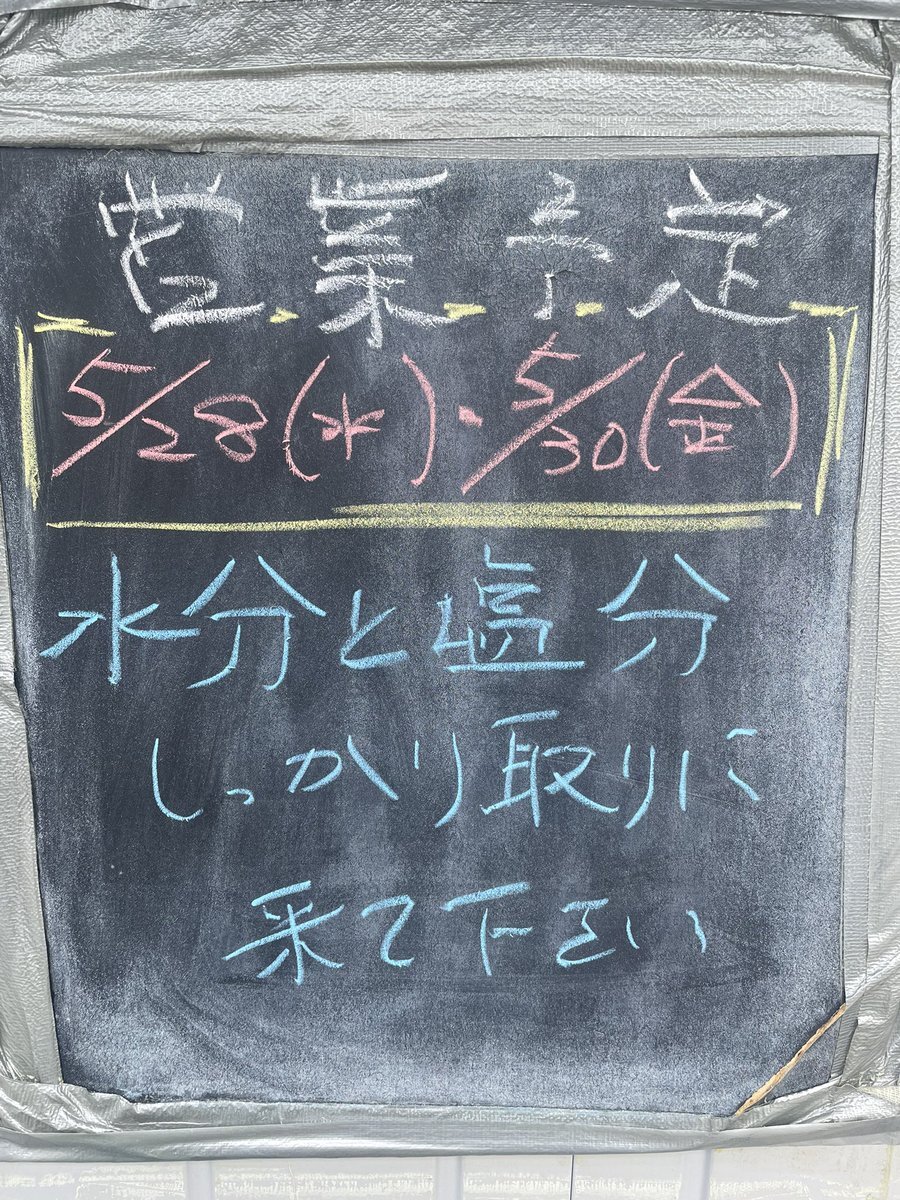 営業予定
5/28(水)・5/30(金)
水分と塩分
しっかり取りに
来て下さい